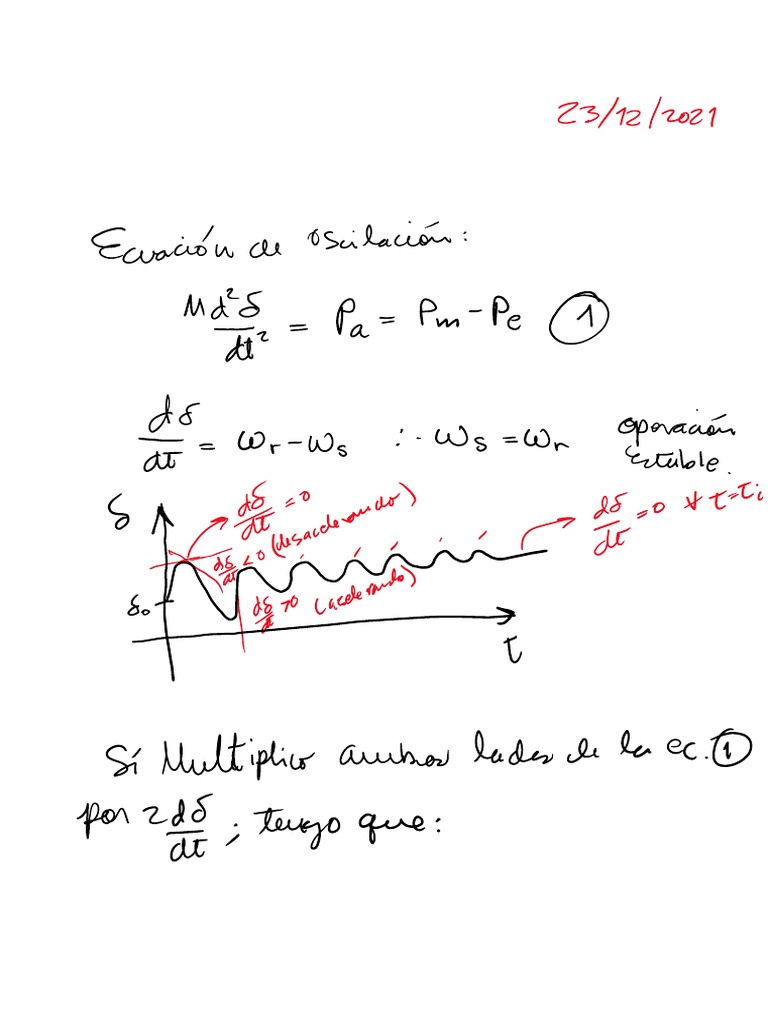 23/12/2021
Ecuación de oscilación:
M d²δ/dt² = Pa = Pm - Pe ①
dδ/dt = ωr - ωs ∴ ωs = ωr operación estable.
δ
dδ/dt = 0
dδ/dt < 0 (desacelerando)
dδ/dt = 0 ∀ t = ti
δ₀
dδ/d > 0 (acelerando)
t
Sí Multiplico ambos lados de la ec. ①
por 2 dδ/dt ; tengo que: